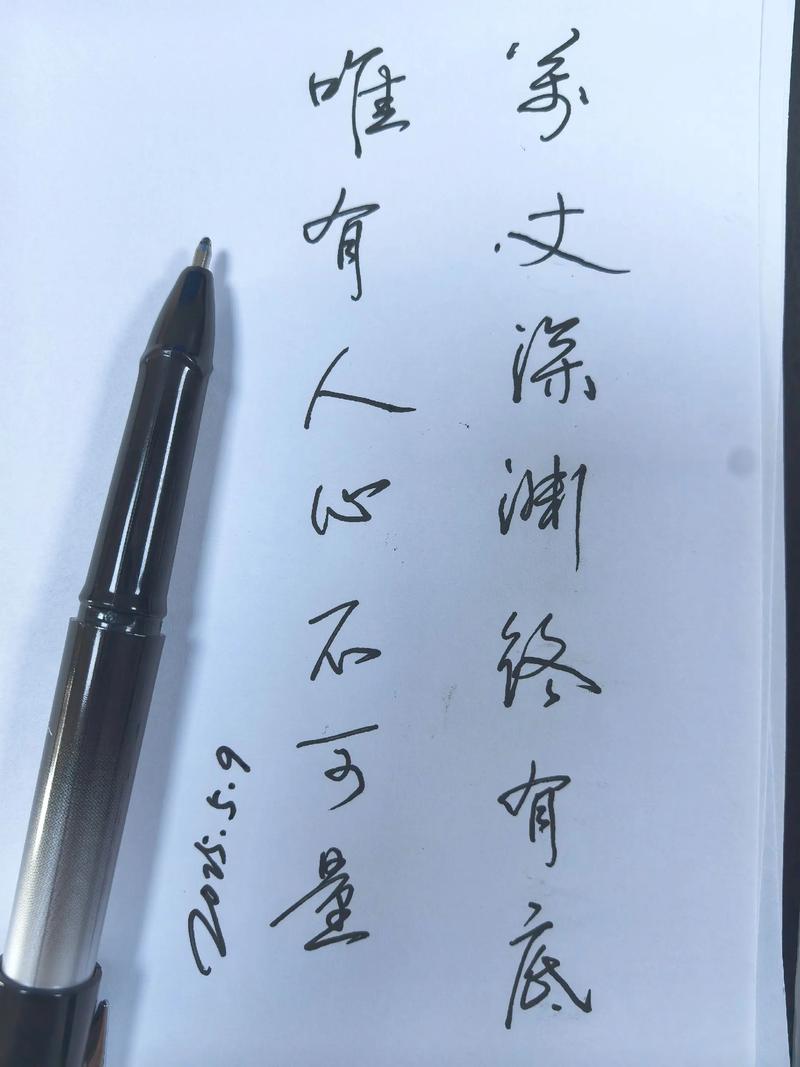 萬丈深渊终有底
唯有人心不可量
2025.5.9